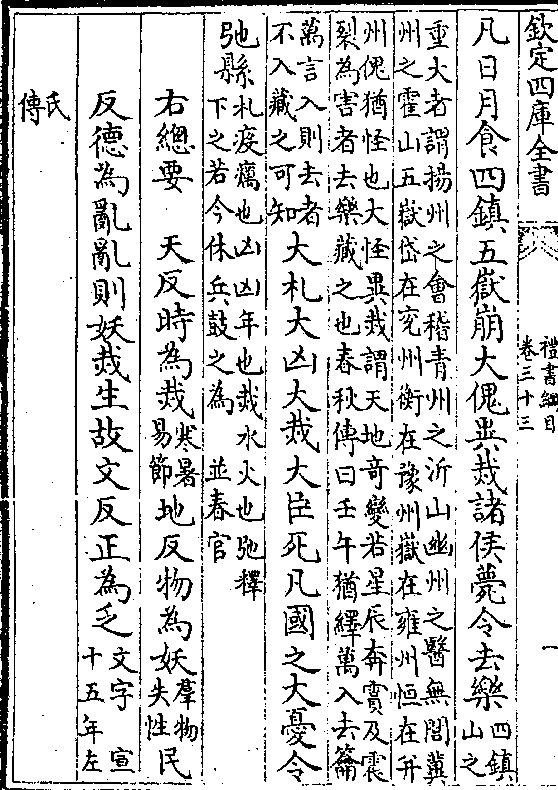 欽定四庫全書
禮書綱目
卷三十三
一
凡日月食四鎮五嶽崩大傀異烖諸侯薨令去樂
四鎮
山之
重大者謂揚州之會稽青州之沂山幽州之醫無閭冀
州之霍山五嶽岱在兗州衡在豫州嶽在雍州恒在并
州傀猶怪也大怪異烖謂天地奇變若星辰奔霣及震
裂為害者去樂藏之也春秋傳曰壬午猶繹萬入去籥
萬言入則去者
不入藏之可知
大札大凶大烖大臣死凡國之大憂令
弛縣
札疫癘也凶凶年也烖水火也弛釋
下之若今休兵鼓之為 並春官
右總要 天反時為烖
寒暑
易節
地反物為妖
羣物
失性
民
反德為亂亂則妖烖生故文反正為乏
文字 宣
十五年左
氏
傳